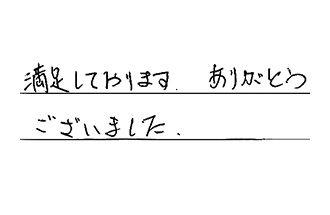 満足しております. ありがとう
ございました.